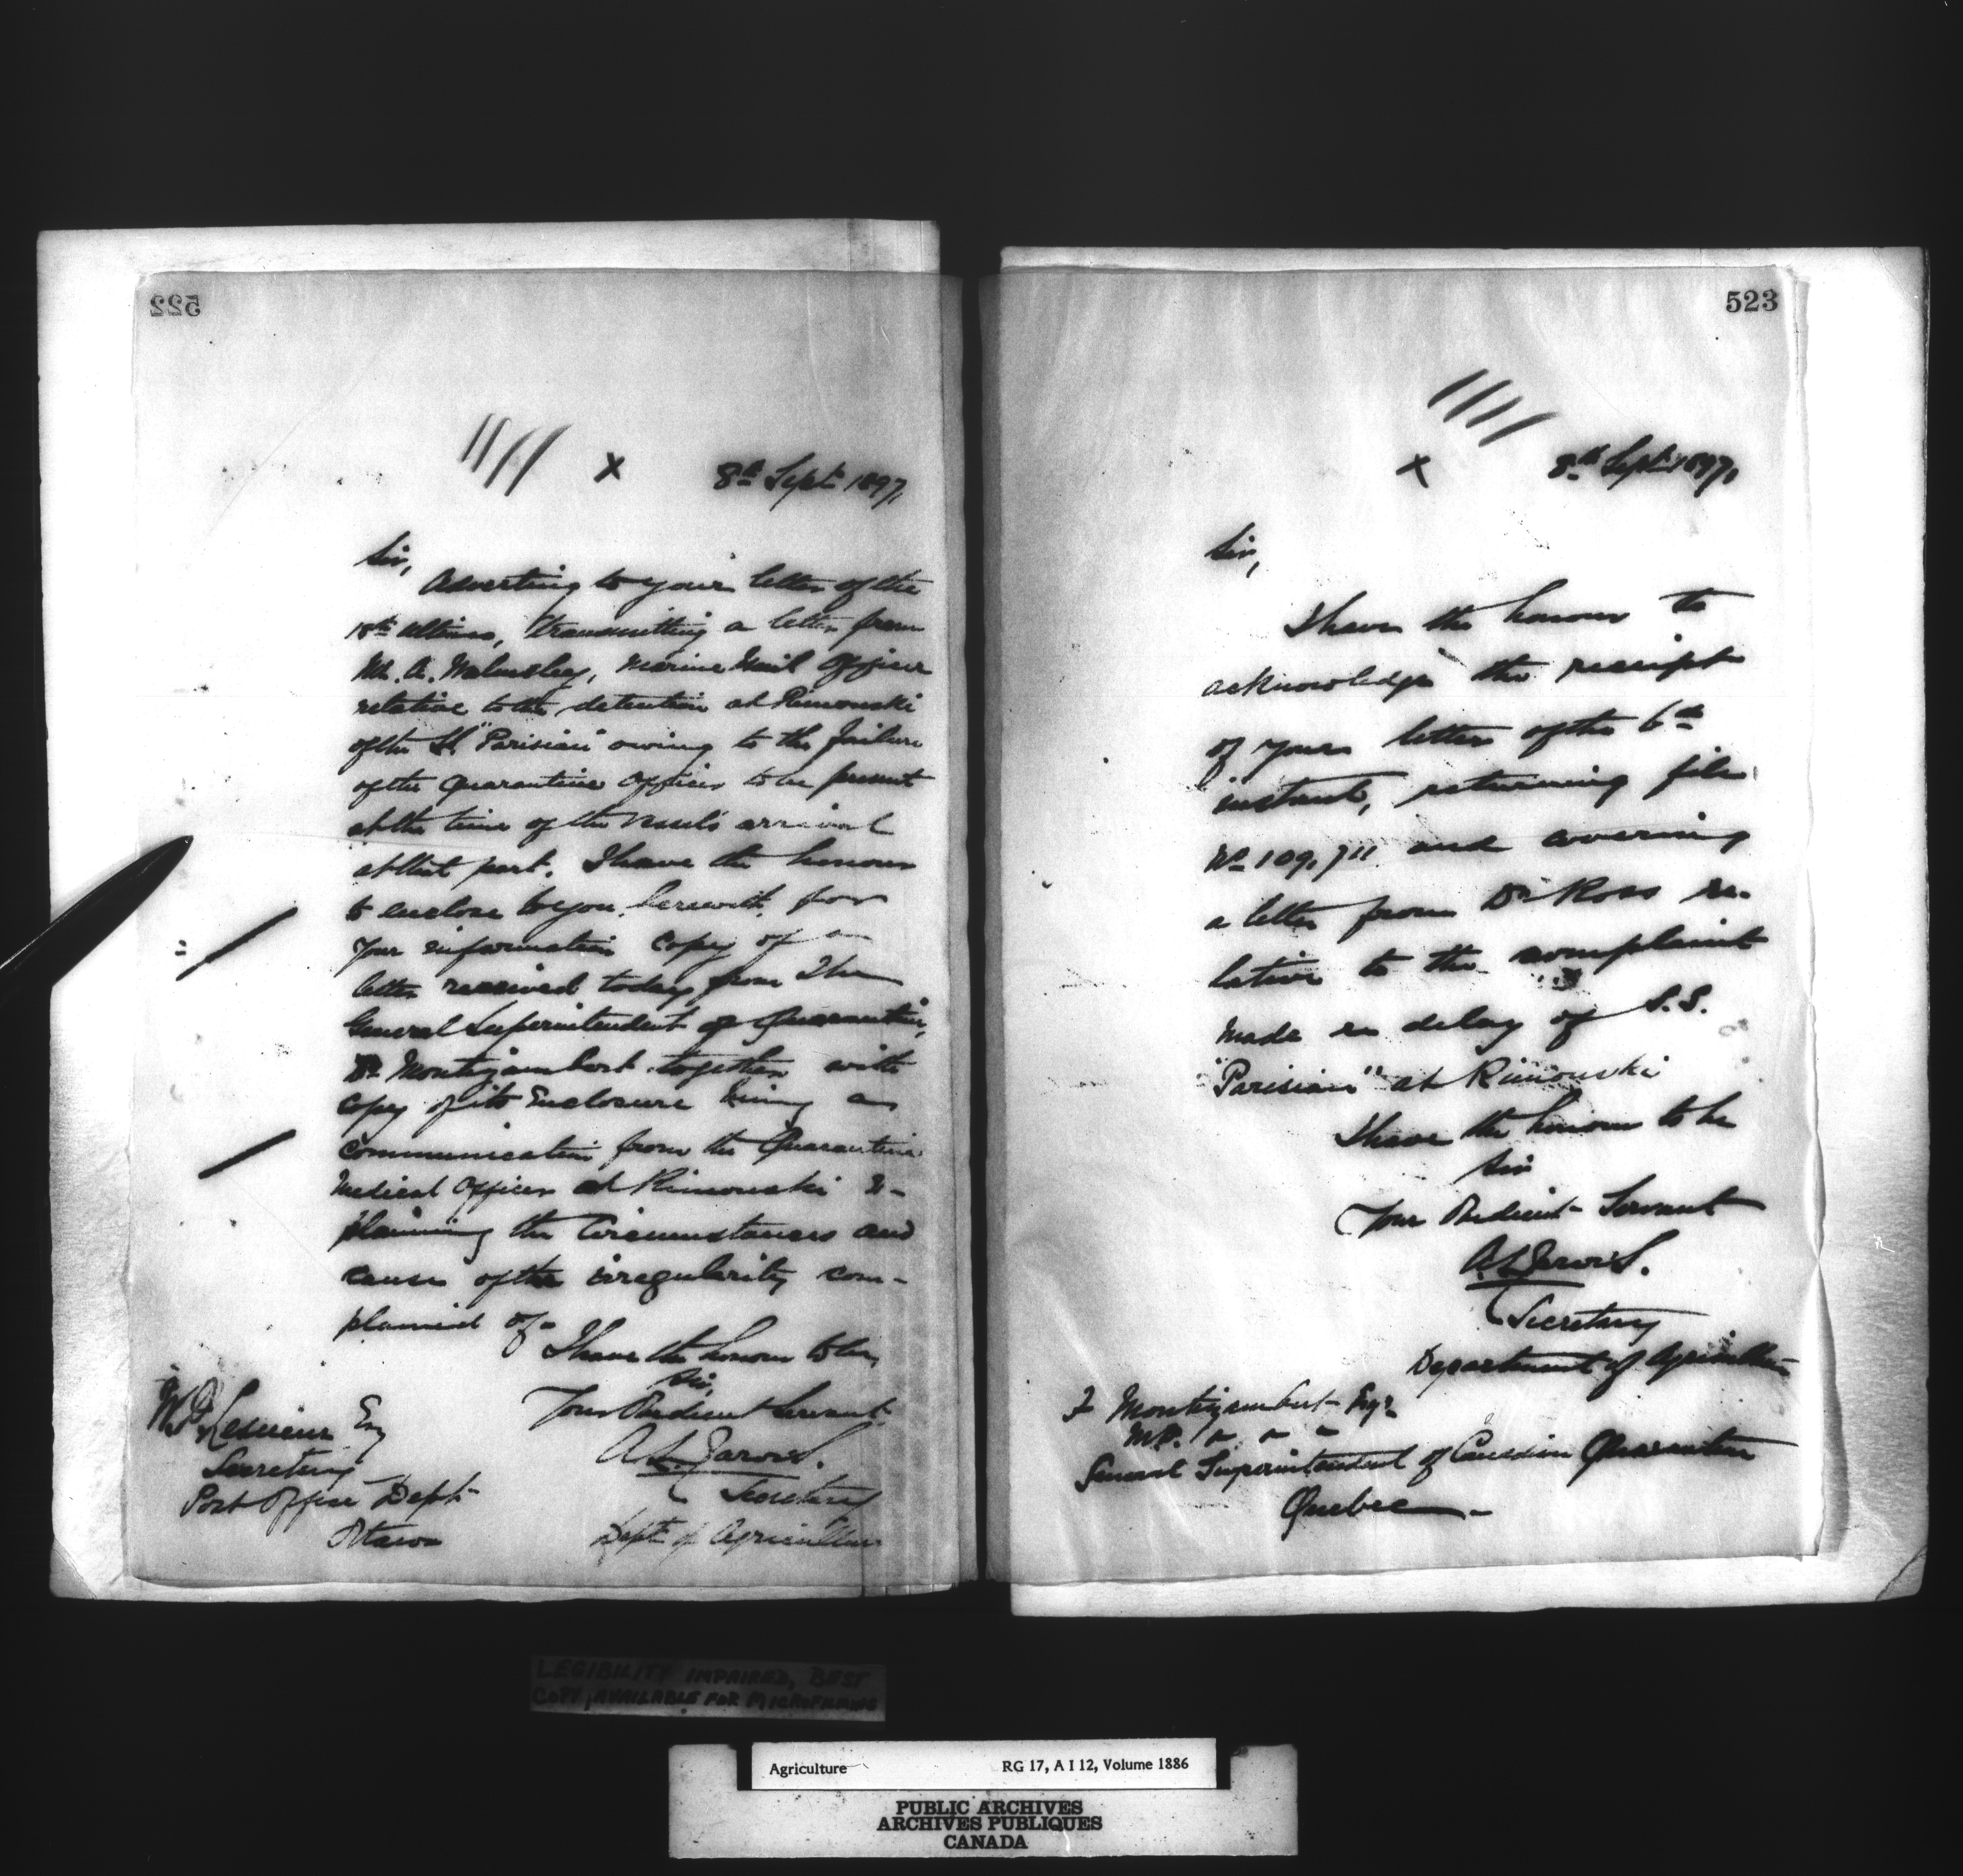 522
//// x 8th Sept 1897,
Sir,
Adverting to your letter of the
18th ultimo, transmitting a letter from
Mr. A. Walmsley, Marine Mail Officer
relative to the detention at Rimouski
of the SS "Parisian" owing to the failure
of the Quarantine Officer to be present
at the time of the vessel's arrival
at that port. I have the honour
to enclose to you herewith for
your information copy of a
letter received today from The
General Superintendent of Quarantine,
Dr Montizambert together with
copy of its Enclosure being a
communication from the Quarantine
Medical Officer at Rimouski ex-
plaining the circumstances and
cause of the irregularity com-
plained of-
I have the honour to be,
Sir,
Your Obedient Servant.
A.L. Jarvis.
Secretary
Dept of Agriculture
W.D. Lesueur Esq
Secretary
Post Office Dept
Ottawa
523
////
x 8th Sept 1897,
Sir,
I have the honour to
acknowledge the receipt
of your letter of the 6th
instant, returning file
No 109,711 and covering
a letter from Dr Ross re-
lative to the complaint
made re delay of S.S.
"Parisian" at Rimouski
I have the honour to be
Sir
Your Obedient Servant
A.L. Jarvis.
Secretary
Department of Agriculture
F Montizambert Esqr.
General Superintendent of Canadian Quarantine
Quebec-
LEGIBILITY IMPAIRED, BEST
COPY, AVAILABLE FOR MICROFILMING
Agriculture RG 17, A I 12, Volume 1886
PUBLIC ARCHIVES
ARCHIVES PUBLIQUES
CANADA